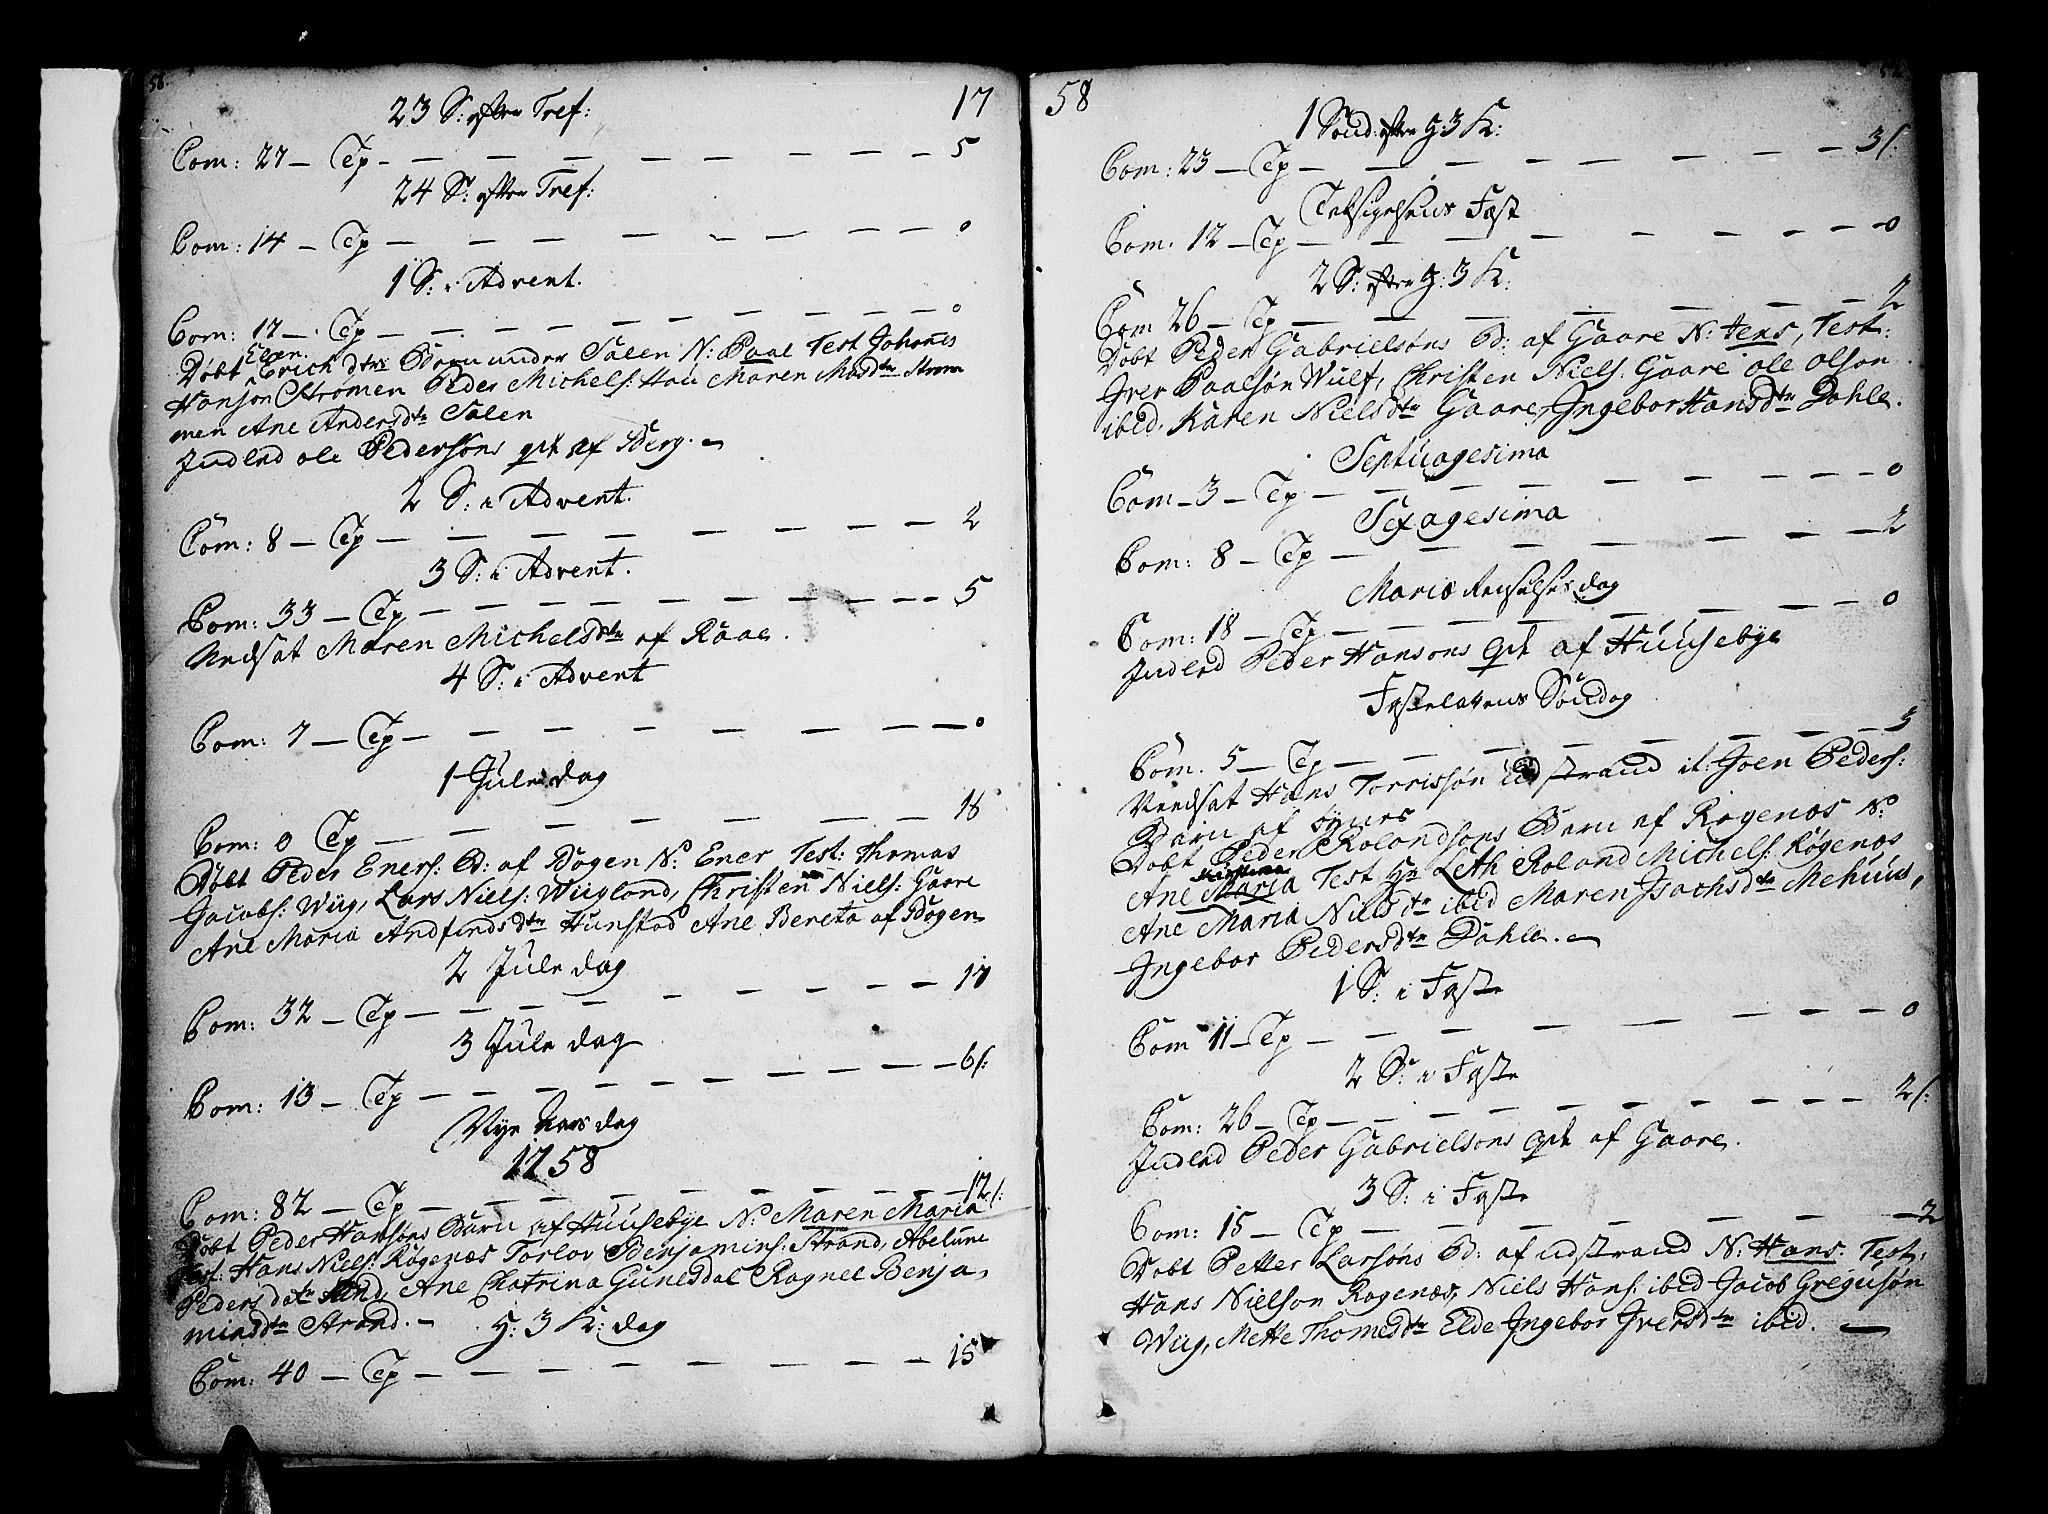 58.
17
23 S: efter Tref:
Com: 27 — Tp — — — — — — — — 5
24 S: efter Tref:
Com: 14 — Tp — — — — — — — 0
1 S: i Advent.
Com: 17 — Tp — — — — — — — — 0
Elen
Døbt Erich dtrs Barn under Salen N: Paal Test Johanes
Hansøn Strømen Peder Michels: Hou Maren Masdtr Strøm
men Ane Andersdtr Salen
Indled ole Pedersøns qvt af Berg. —
2 S: i Advent.
Com: 8 — Tp — — — — — — — 2
3 S: i Advent.
Com: 33 — Tp — — — — — — — — 5
Nedsat Maren Michelsdtr af Raae.
4 S: i Advent
Com: 7 — Tp — — — — — — — 0
1 Jule dag
Com: 0 Tp — — — — — — 18
Døbt Peder Eners: B: af Bogen N: Ener Test: Thomas
Jacobs: Wiig, Lars Niels: Wiiglond, Christen Niels: Gaare
Ane Maria Andfindsdtr Hunstad Ane Bereta af Bogen
2 Jule dag
Com: 32 — Tp — — — — — — — 17
3 Jule dag
Com: 13 — Tp — — — — — — — 6/:
Nye Aars dag
1758
Com: 82 — Tp — — — — — — — 12/:
Døbt Peder Hansøns Barn af Huusebye N: Maren Maria
Test: Hans Niels: Røgenæs Torlov Benjamins: Strand, Abelune
Peders datr, Ane Chatrina Gunesdal Ragnel Benja
minsdtr Strand. —
H: 3 K: dag
Com: 40 — Tp — — — — — — — 15
58
1 Sønd: efter H: 3 K:
Com: 23 — Tp — — — — — — — 3/:
Com: 12 — Tp — — — — — — — 0
2 S: efter H: 3 K:
Com 26 — Tp — — — — — — — 2
Døbt Peder Gabrielsøns B: af Gaare N: Jens, Test:
Iver Paalsøn Wulf, Christen Niels: Gaare ole olsøn
ibid. Karen Nielsdtr Gaare, Ingebor Hansdtr Dahle.
Septuagesima
Com — 3 — Tp — — — — — — — 0
Sexagesima
Com: 8 — Tp — — — — — — — 2
Mariæ Renselses dag
Com: 18 — Tp — — — — — — — 0
Indled Peder Hansøns qvt af Huusebye
Fastelavens Søndag
Com. 5 — Tp — — — — — — — 5
Nedsat Hans Torrissøn udstrand it: Joen Peders:
Barn af synes
Døbt Peder Rolandsøns Barn af Røgenæs N:
Ane Maria Test Hr Leth Roland Michels: Røgenæs
Ane Maria Nielsdtr ibid Maren Isachsdtr Mehuus,
Ingebor Pedersdtr Dahle. —
1 S: i Faste
Com 11 — Tp — — — — — — — 0
2 S: i Faste
Com: 26 — Tp — — — — — — — 2/:
Indled Peder Gabrielsøns qvt af Gaare.
3 S: i Faste
Com: 15 — Tp — — — — — — — 2
Døbt Petter Larsøns B: af udstrand N: Hans: Test:
Hans Nielsøn Røgenæs, Niels Hans: ibid Jacob Gregusøn
Wiig, Mette Thomesdtr Elde Ingebor Iversdtr ibid. —